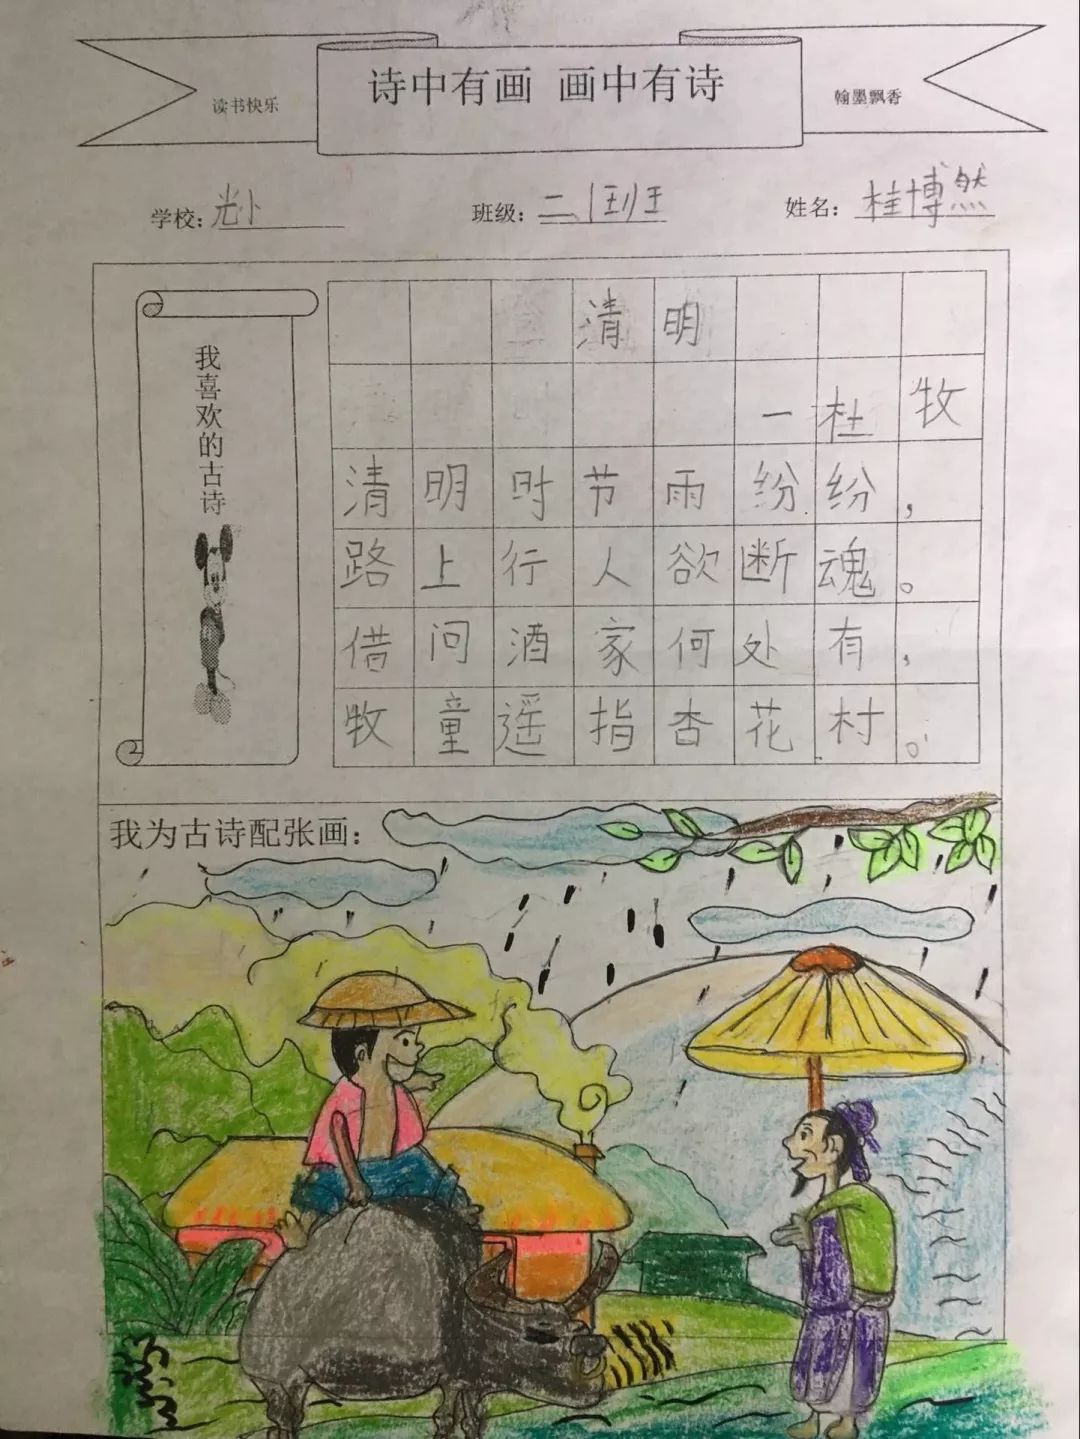 诗中有画 画中有诗
读书快乐
翰墨飘香
学校: 光小 班级: 二、1王班 姓名: 桂博然
我喜欢的古诗
清明
一杜牧
清明时节雨纷纷,
路上行人欲断魂。
借问酒家何处有,
牧童遥指杏花村。
我为古诗配张画: